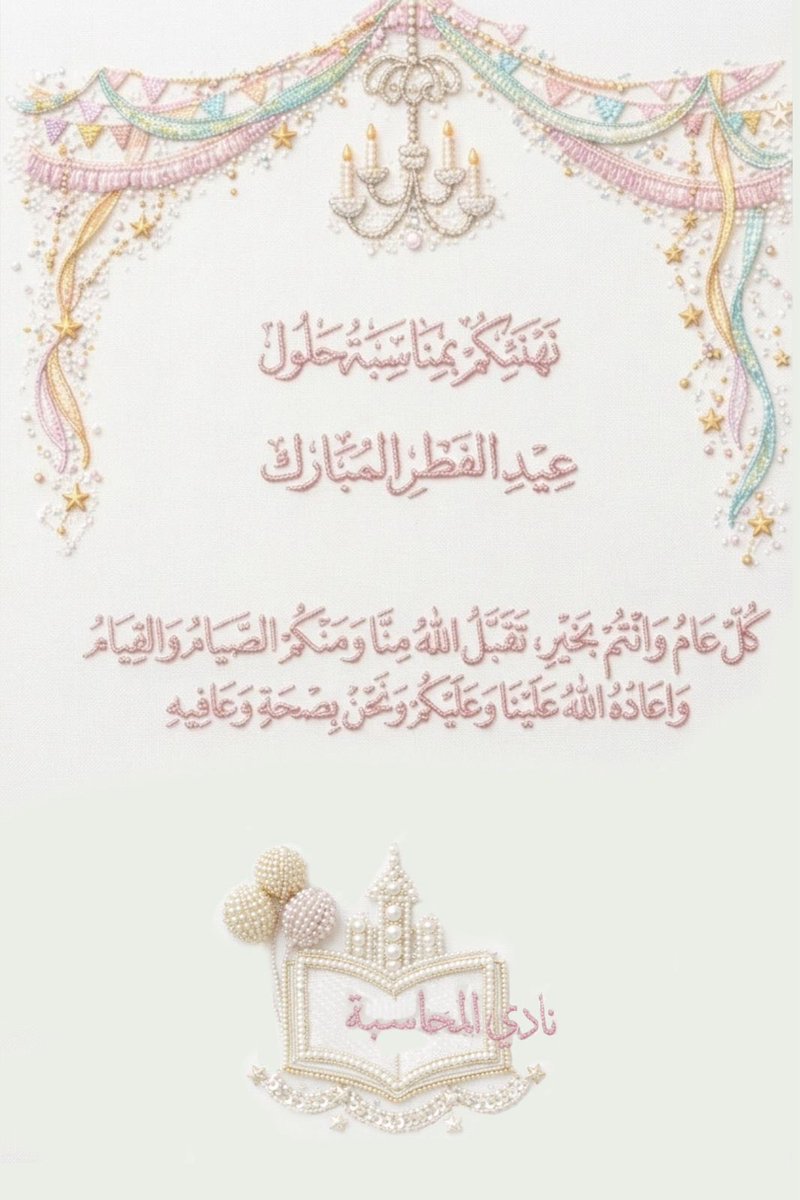 نَهَنِّئِكُمْ بِمِنَاسِبَةُ حَلُول
عِيْدِ الفَطْرِ المُبَارَك
كُلّ عَامُ وَانْتُمْ بَخَيْرِ، تَقَبَلُ اللهُ مِنَّا وَمَنْكُمْ الصَّيَامُ وَالقِيَامُ
وَاعَادُهُ اللهُ عَلَيْنَا وَعَلَيْكُمْ وَنَحْنُ بِصْحَةِ وَعَافِيهِ
نادي المحاسبة